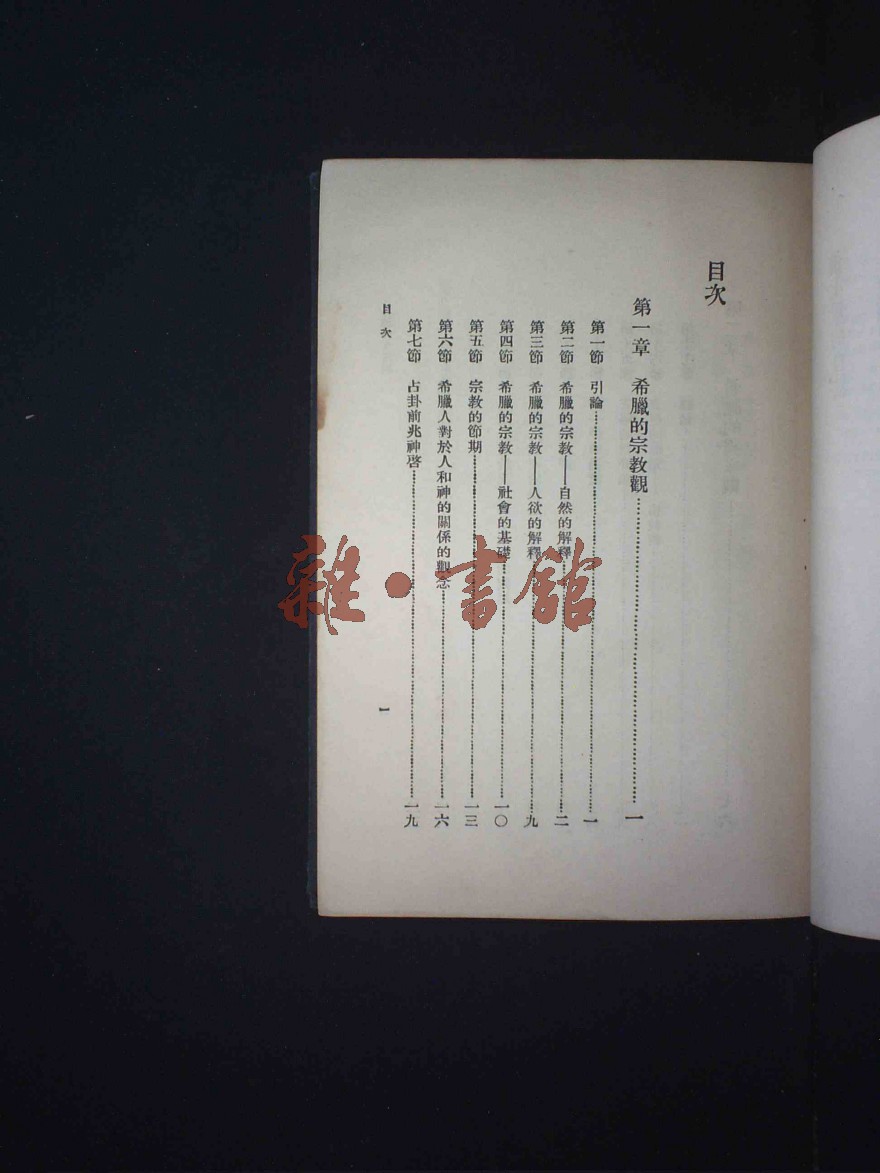 目次
第一章　希臘的宗教觀……一
第一節　引論……一
第二節　希臘的宗教——自然的解釋……二
第三節　希臘的宗教——人欲的解釋……九
第四節　希臘的宗教——社會的基礎……一〇
第五節　宗教的節期……一三
第六節　希臘人對於人和神的關係的觀念……一六
第七節　占卦前兆神啓……一九
目次
一
雜·書館